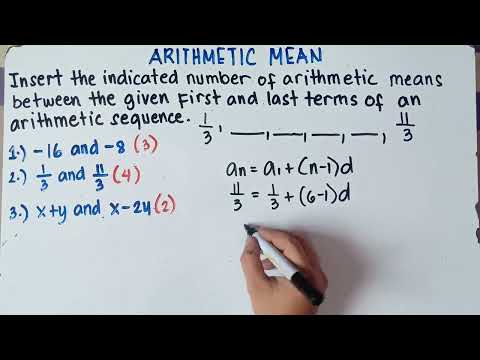 ARITHMETIC MEAN
Insert the indicated number of arithmetic means
between the given first and last terms of an
arithmetic sequence.
1/3, ___, ___, ___, ___, 11/3
1.) -16 and -8 (3)
2.) 1/3 and 11/3 (4)
3.) x+y and x-2y (2)
an = a1 + (n-1)d
11/3 = 1/3 + (6-1)d